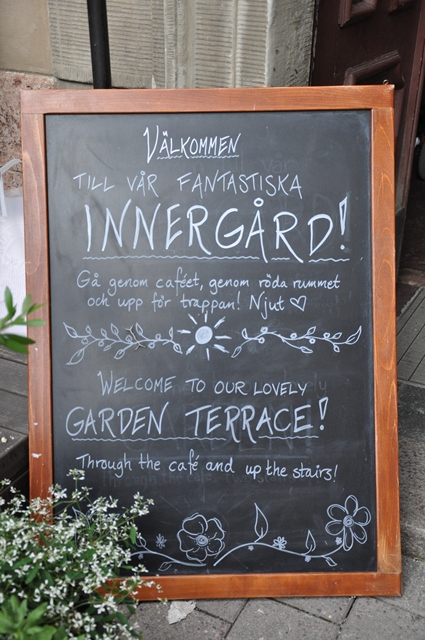 VÄLKOMMEN
TILL VÅR FANTASTISKA
INNERGÅRD!
Gå genom caféet, genom röda rummet
och upp för trappan! Njut ♡
WELCOME TO OUR LOVELY
GARDEN TERRACE!
Through the café and up the stairs!